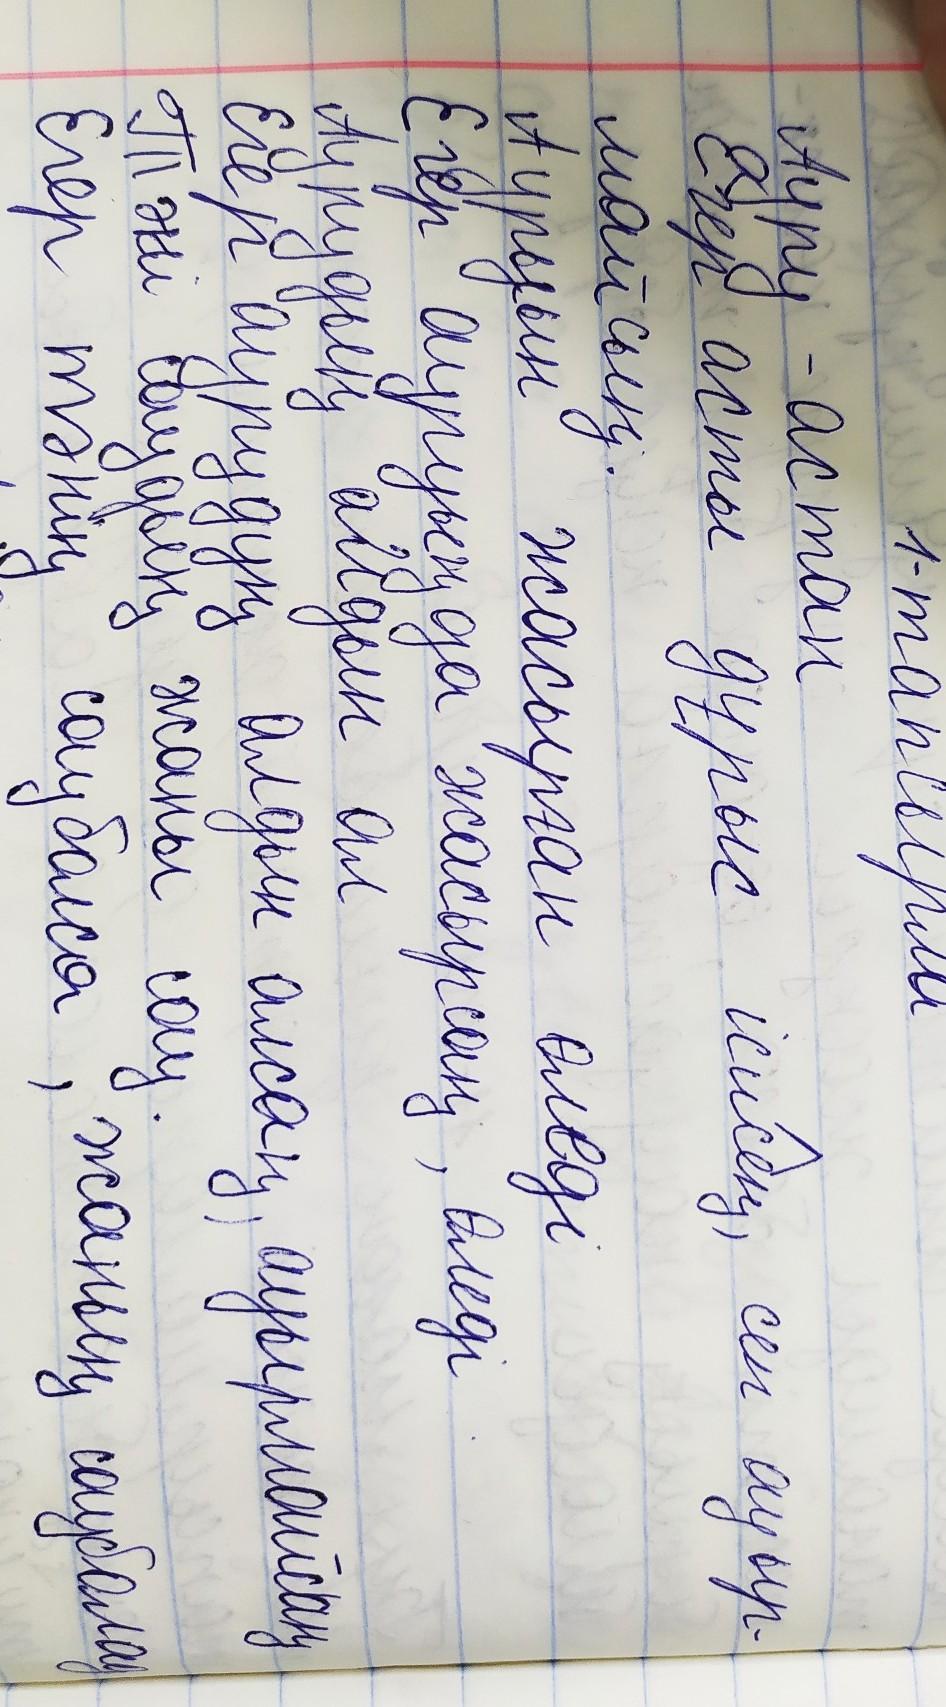 1-тапсырма
- Ауру - астан
Егер асты дұрыс ішсең, сен ауыр-
майсың.
Ауруын жасырған өледі
Егер ауруыңда жасырсаң, өледі
Аурудың айдын ал
Егер аурудұң алдын алсаң, ауырмайсаң
Тәжі саудың жаны сау.
Егер тәнің саубалса, жаның саубалад